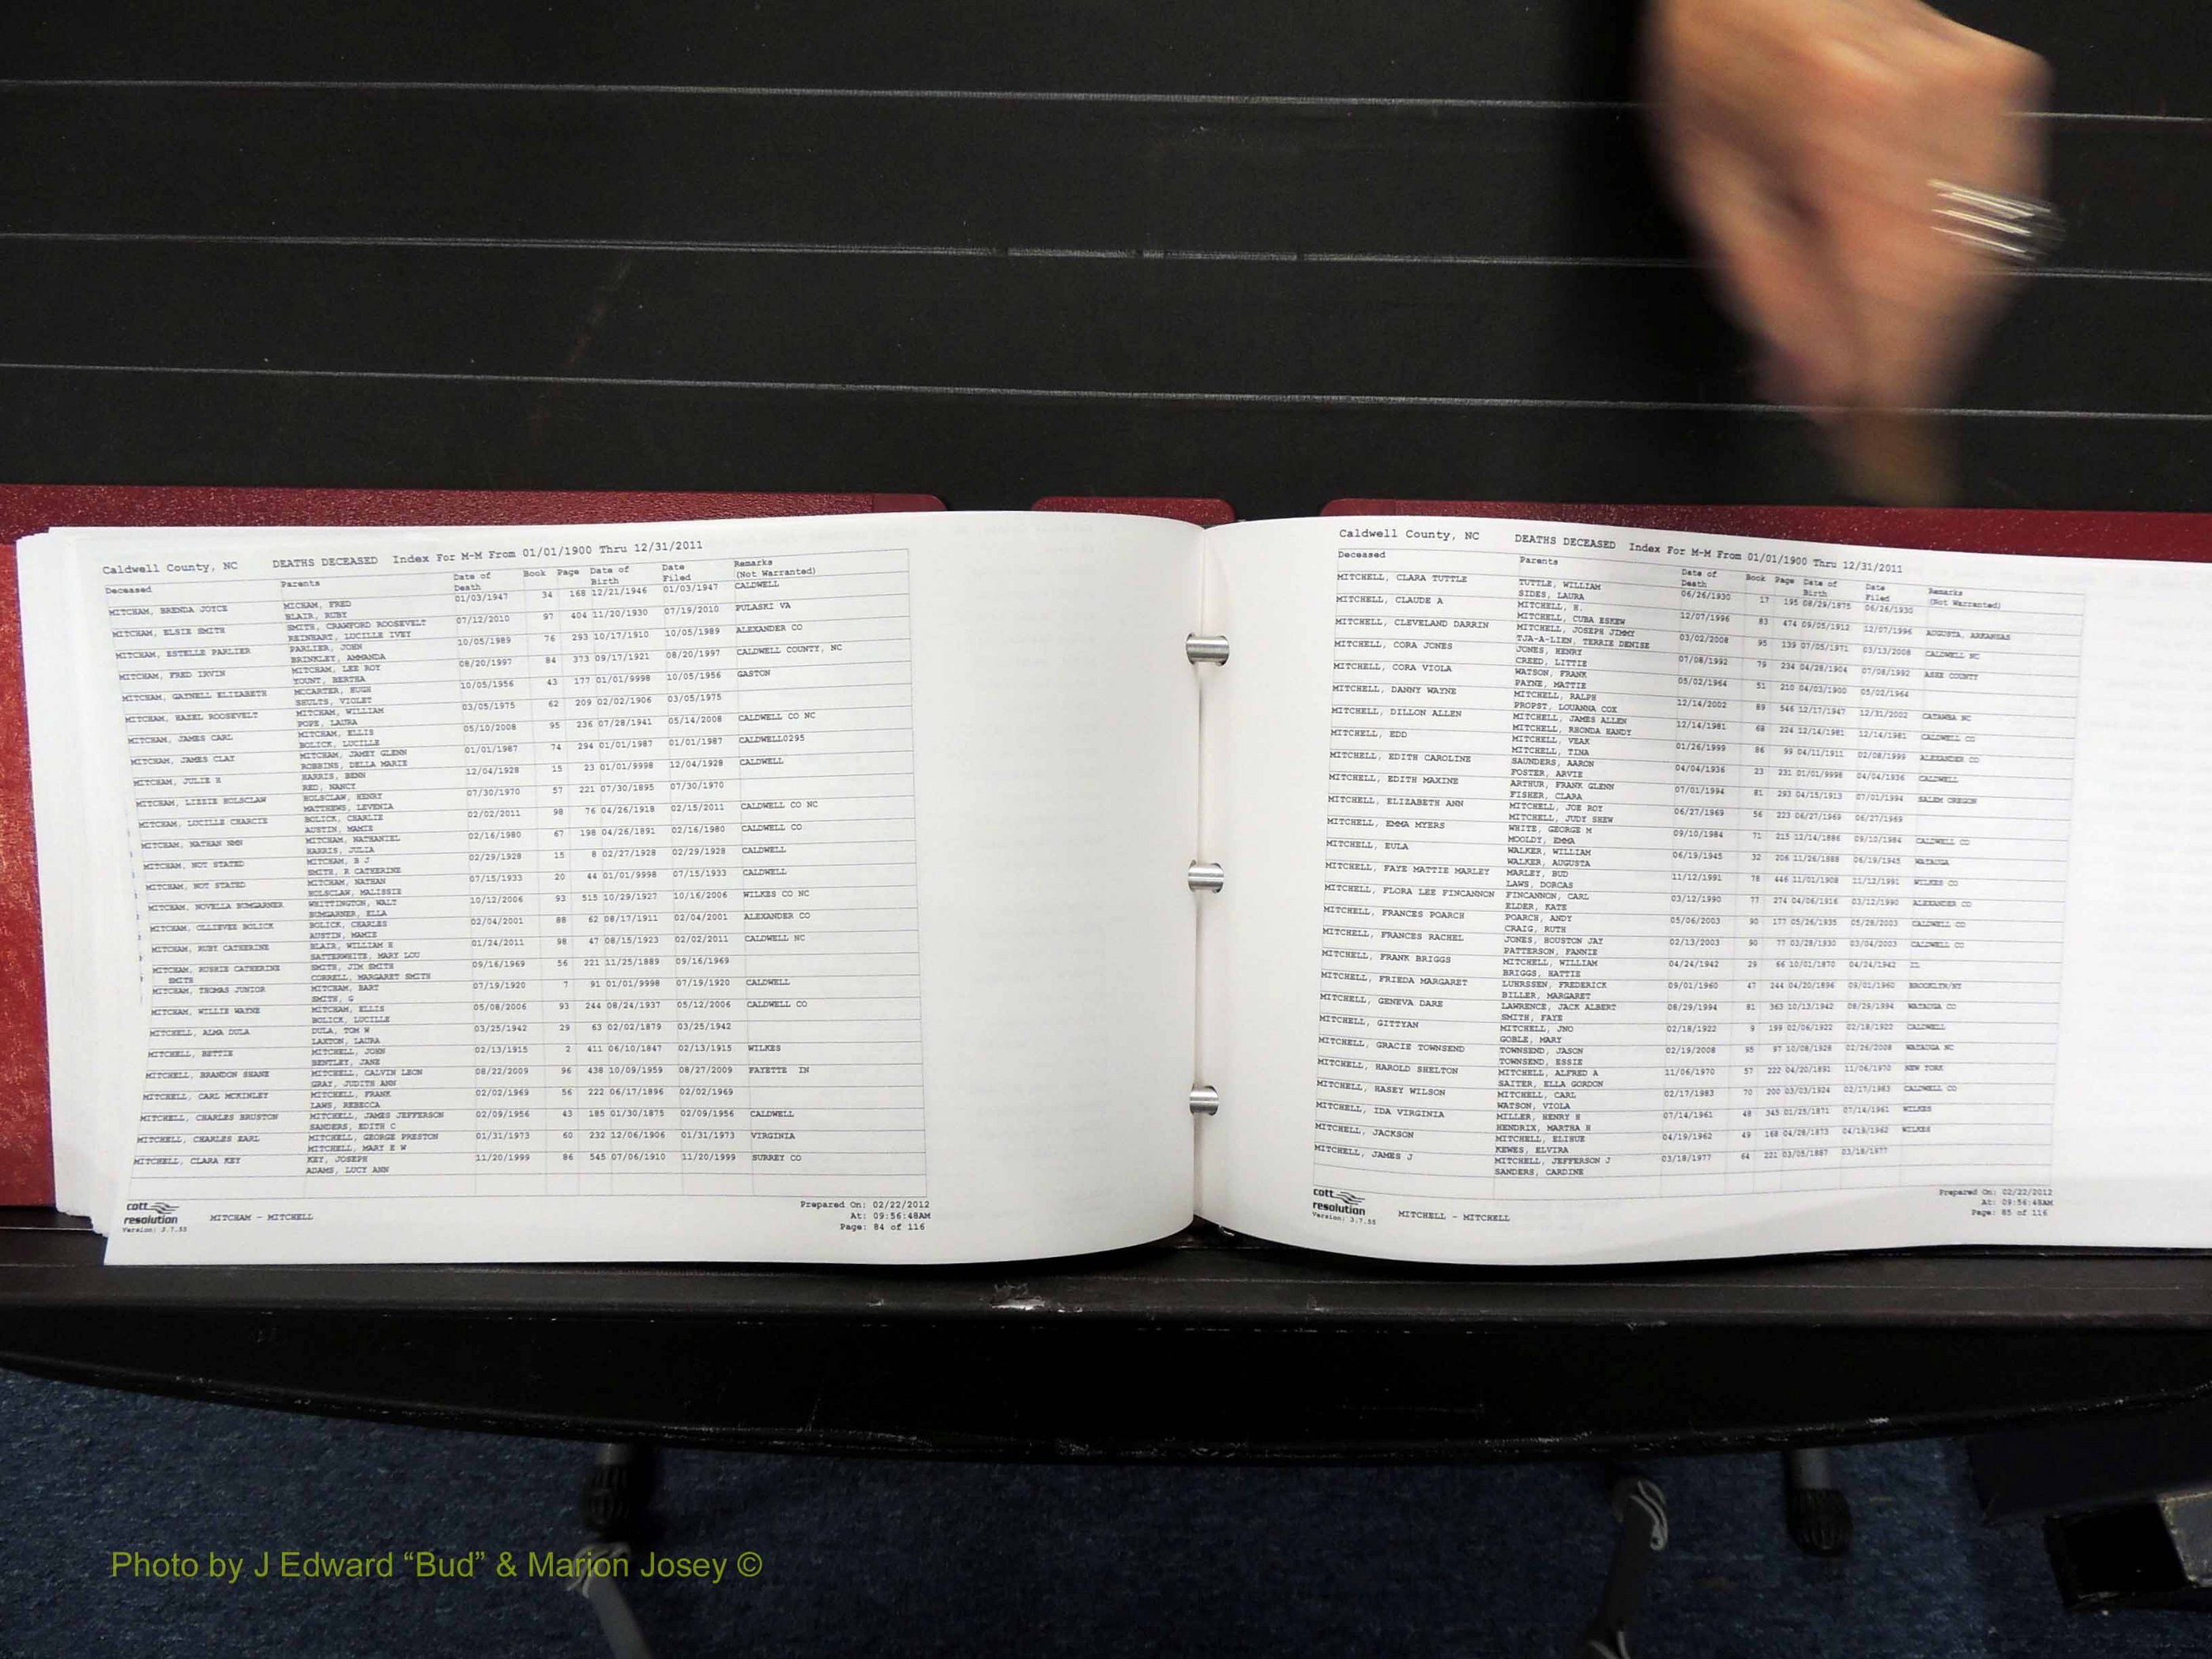 Caldwell County, NC DEATHS DECEASED Index For M-M From 01/01/1900 Thru 12/31/2011
Deceased Parents Date of Death Book Page Date of Birth Date Filed Remarks (Not Warranted)
MITCHAM, BRENDA JOYCE MICHAM, FRED 01/03/1947 34 168 12/21/1946 01/03/1947 CALDWELL
BLAIR, RUBY
MITCHAM, ELSIE SMITH SMITH, CRAWFORD ROOSEVELT 07/12/2010 97 404 11/20/1930 07/19/2010 PULASKI VA
REINHART, LUCILLE IVEY
MITCHAM, ESTELLE PARLIER PARLIER, JOHN 10/05/1989 76 293 10/17/1910 10/05/1989 ALEXANDER CO
BRINKLEY, AMMANDA
MITCHAM, FRED IRVIN MITCHAM, LEE ROY 08/20/1997 84 373 09/17/1921 08/20/1997 CALDWELL COUNTY, NC
YOUNT, BERTHA
MITCHAM, GAYNELL ELIZABETH MCCARTER, HUGH 10/05/1956 43 177 01/01/9998 10/05/1956 GASTON
SHULTS, VIOLET
MITCHAM, HAZEL ROOSEVELT MITCHAM, WILLIAM 03/05/1975 62 209 02/02/1906 03/05/1975
POPE, LAURA
MITCHAM, JAMES CARL MITCHAM, ELLIS 05/10/2008 95 236 07/28/1941 05/14/2008 CALDWELL CO NC
BOLICK, LUCILLE
MITCHAM, JAMES CLAY MITCHAM, JAMEY GLENN 01/01/1987 74 294 01/01/1987 01/01/1987 CALDWELL0295
ROBBINS, DELLA MARIE
MITCHAM, JULIE H HARRIS, BENN 12/04/1928 15 23 01/01/9998 12/04/1928 CALDWELL
RED, NANCY
MITCHAM, LIZZIE HOLSCLAW HOLSCLAW, HENRY 07/30/1970 57 221 07/30/1895 07/30/1970
MATTHEWS, LEVENIA
MITCHAM, LUCILLE CHARCIE BOLICK, CHARLIE 02/02/2011 98 76 04/26/1918 02/15/2011 CALDWELL CO NC
AUSTIN, MAMIE
MITCHAM, NATHAN NMN MITCHAM, NATHANIEL 02/16/1980 67 198 04/26/1891 02/16/1980 CALDWELL CO
HARRIS, JULIA
MITCHAM, NOT STATED MITCHAM, B J 02/29/1928 15 8 02/27/1928 02/29/1928 CALDWELL
SMITH, R CATHERINE
MITCHAM, NOT STATED MITCHAM, NATHAN 07/15/1933 20 44 01/01/9998 07/15/1933 CALDWELL
HOLSCLAW, MALISSIE
MITCHAM, NOVELLA BUMGARNER WHITTINGTON, WALT 10/12/2006 93 515 10/29/1927 10/16/2006 WILKES CO NC
BUMGARNER, ELLA
MITCHAM, OLLIEVEE BOLICK BOLICK, CHARLES 02/04/2001 88 62 08/17/1911 02/04/2001 ALEXANDER CO
AUSTIN, MAMIE
MITCHAM, RUBY CATHERINE BLAIR, WILLIAM H 01/24/2011 98 47 08/15/1923 02/02/2011 CALDWELL NC
SATTERWHITE, MARY LOU
MITCHAM, RUSHIE CATHERINE SMITH SMITH, JIM SMITH 09/16/1969 56 221 11/25/1889 09/16/1969
CORRELL, MARGARET SMITH
MITCHAM, THOMAS JUNIOR MITCHAM, BART 07/19/1920 7 91 01/01/9998 07/19/1920 CALDWELL
SMITH, G
MITCHAM, WILLIE WAYNE MITCHAM, ELLIS 05/08/2006 93 244 08/24/1937 05/12/2006 CALDWELL CO
BOLICK, LUCILLE
MITCHELL, ALMA DULA DULA, TOM W 03/25/1942 29 63 02/02/1879 03/25/1942
LAXTON, LAURA
MITCHELL, BETTIE MITCHELL, JOHN 02/13/1915 2 411 06/10/1847 02/13/1915 WILKES
BENTLEY, JANE
MITCHELL, BRANDON SHANE MITCHELL, CALVIN LEON 08/22/2009 96 438 10/09/1959 08/27/2009 FAYETTE IN
GRAY, JUDITH ANN
MITCHELL, CARL MCKINLEY MITCHELL, FRANK 02/02/1969 56 222 06/17/1896 02/02/1969
LAWS, REBECCA
MITCHELL, CHARLES BRUSTON MITCHELL, JAMES JEFFERSON 02/09/1956 43 185 01/30/1875 02/09/1956 CALDWELL
SANDERS, EDITH C
MITCHELL, CHARLES EARL MITCHELL, GEORGE PRESTON 01/31/1973 60 232 12/06/1906 01/31/1973 VIRGINIA
MITCHELL, MARY E W
MITCHELL, CLARA KEY KEY, JOSEPH 11/20/1999 86 545 07/06/1910 11/20/1999 SURREY CO
ADAMS, LUCY ANN
cott resolution
Version: 3.7.55
MITCHAM - MITCHELL
Prepared On: 02/22/2012
At: 09:56:48AM
Page: 84 of 116
Caldwell County, NC DEATHS DECEASED Index For M-M From 01/01/1900 Thru 12/31/2011
Deceased Parents Date of Death Book Page Date of Birth Date Filed Remarks (Not Warranted)
MITCHELL, CLARA TUTTLE TUTTLE, WILLIAM 06/26/1930 17 195 08/29/1875 06/26/1930
SIDES, LAURA
MITCHELL, CLAUDE A MITCHELL, H. 12/07/1996 83 474 09/05/1912 12/07/1996 AUGUSTA, ARKANSAS
MITCHELL, CUBA ESKEW
MITCHELL, CLEVELAND DARRIN MITCHELL, JOSEPH JIMMY 03/02/2008 95 139 07/05/1971 03/13/2008 CALDWELL NC
TJA-A-LIEN, TERRIE DENISE
MITCHELL, CORA JONES JONES, HENRY 07/08/1992 79 234 04/28/1904 07/08/1992 ASHE COUNTY
CREED, LITTIE
MITCHELL, CORA VIOLA WATSON, FRANK 05/02/1964 51 210 04/03/1900 05/02/1964
PAYNE, MATTIE
MITCHELL, DANNY WAYNE MITCHELL, RALPH 12/14/2002 89 546 12/17/1947 12/31/2002 CATAWBA NC
PROPST, LOUANNA COX
MITCHELL, DILLON ALLEN MITCHELL, JAMES ALLEN 12/14/1981 68 224 12/14/1981 12/14/1981 CALDWELL CO
MITCHELL, RHONDA HANDY
MITCHELL, EDD MITCHELL, VEAK 01/26/1999 86 99 04/11/1911 02/08/1999 ALEXANDER CO
MITCHELL, TINA
MITCHELL, EDITH CAROLINE SAUNDERS, AARON 04/04/1936 23 231 01/01/9998 04/04/1936 CALDWELL
FOSTER, ARVIE
MITCHELL, EDITH MAXINE ARTHUR, FRANK GLENN 07/01/1994 81 293 04/15/1913 07/01/1994 SALEM OREGON
FISHER, CLARA
MITCHELL, ELIZABETH ANN MITCHELL, JOE ROY 06/27/1969 56 223 06/27/1969 06/27/1969
MITCHELL, JUDY SHEW
MITCHELL, EMMA MYERS WHITE, GEORGE M 09/10/1984 71 215 12/14/1886 09/10/1984 CALDWELL CO
MOOLDY, EMMA
MITCHELL, EULA WALKER, WILLIAM 06/19/1945 32 206 11/26/1888 06/19/1945 WATAUGA
WALKER, AUGUSTA
MITCHELL, FAYE MATTIE MARLEY MARLEY, BUD 11/12/1991 78 446 11/01/1908 11/12/1991 WILKES CO
LAWS, DORCAS
MITCHELL, FLORA LEE FINCANNON FINCANNON, CARL 03/12/1990 77 274 04/06/1916 03/12/1990 ALEXANDER CO
ELDER, KATE
MITCHELL, FRANCES POARCH POARCH, ANDY 05/06/2003 90 177 05/26/1935 05/28/2003 CALDWELL CO
CRAIG, RUTH
MITCHELL, FRANCES RACHEL JONES, HOUSTON JAY 02/13/2003 90 77 03/28/1930 03/04/2003 CALDWELL CO
PATTERSON, FANNIE
MITCHELL, FRANK BRIGGS MITCHELL, WILLIAM 04/24/1942 29 66 10/01/1870 04/24/1942
BRIGGS, HATTIE
MITCHELL, FRIEDA MARGARET LUHRSSEN, FREDERICK 09/01/1960 47 244 04/20/1896 09/01/1960 BROOKLYN/NY
BILLER, MARGARET
MITCHELL, GENEVA DARE LAWRENCE, JACK ALBERT 08/29/1994 81 363 10/13/1942 08/29/1994 WATAUGA CO
SMITH, FAYE
MITCHELL, GITTYAN MITCHELL, JNO 02/18/1922 9 199 02/06/1922 02/18/1922 CALDWELL
GOBLE, MARY
MITCHELL, GRACIE TOWNSEND TOWNSEND, JASON 02/19/2008 95 97 10/08/1928 02/26/2008 WATAUGA NC
TOWNSEND, ESSIE
MITCHELL, HAROLD SHELTON MITCHELL, ALFRED A 11/06/1970 57 222 04/20/1891 11/06/1970 NEW YORK
SAITER, ELLA GORDON
MITCHELL, HASEY WILSON MITCHELL, CARL 02/17/1983 70 200 03/03/1924 02/17/1983 CALDWELL CO
WATSON, VIOLA
MITCHELL, IDA VIRGINIA MILLER, HENRY H 07/14/1961 48 343 01/25/1871 07/14/1961 WILKES
HENDRIX, MARTHA H
MITCHELL, JACKSON MITCHELL, ELIHUE 04/19/1962 49 168 04/28/1873 04/19/1962 WILKES
KEWES, ELVIRA
MITCHELL, JAMES J MITCHELL, JEFFERSON J 03/18/1977 64 221 03/05/1887 03/18/1977
SANDERS, CARDINE
cott resolution
Version: 3.7.55
MITCHELL - MITCHELL
Prepared On: 02/22/2012
At: 09:56:48AM
Page: 85 of 116
Photo by J Edward “Bud” & Marion Josey ©